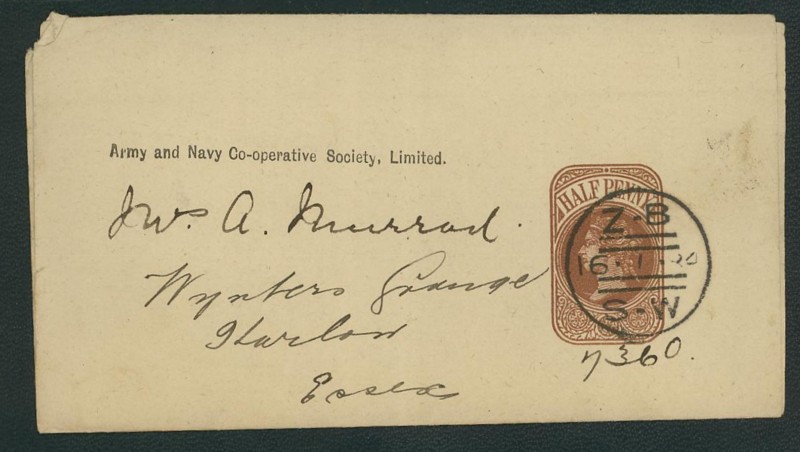 Army and Navy Co-operative Society, Limited.
A. Murrad.
Wynters Grange
Harlow
Essex
HALF PENNY
Z·B
16·1·
S·W
7360.